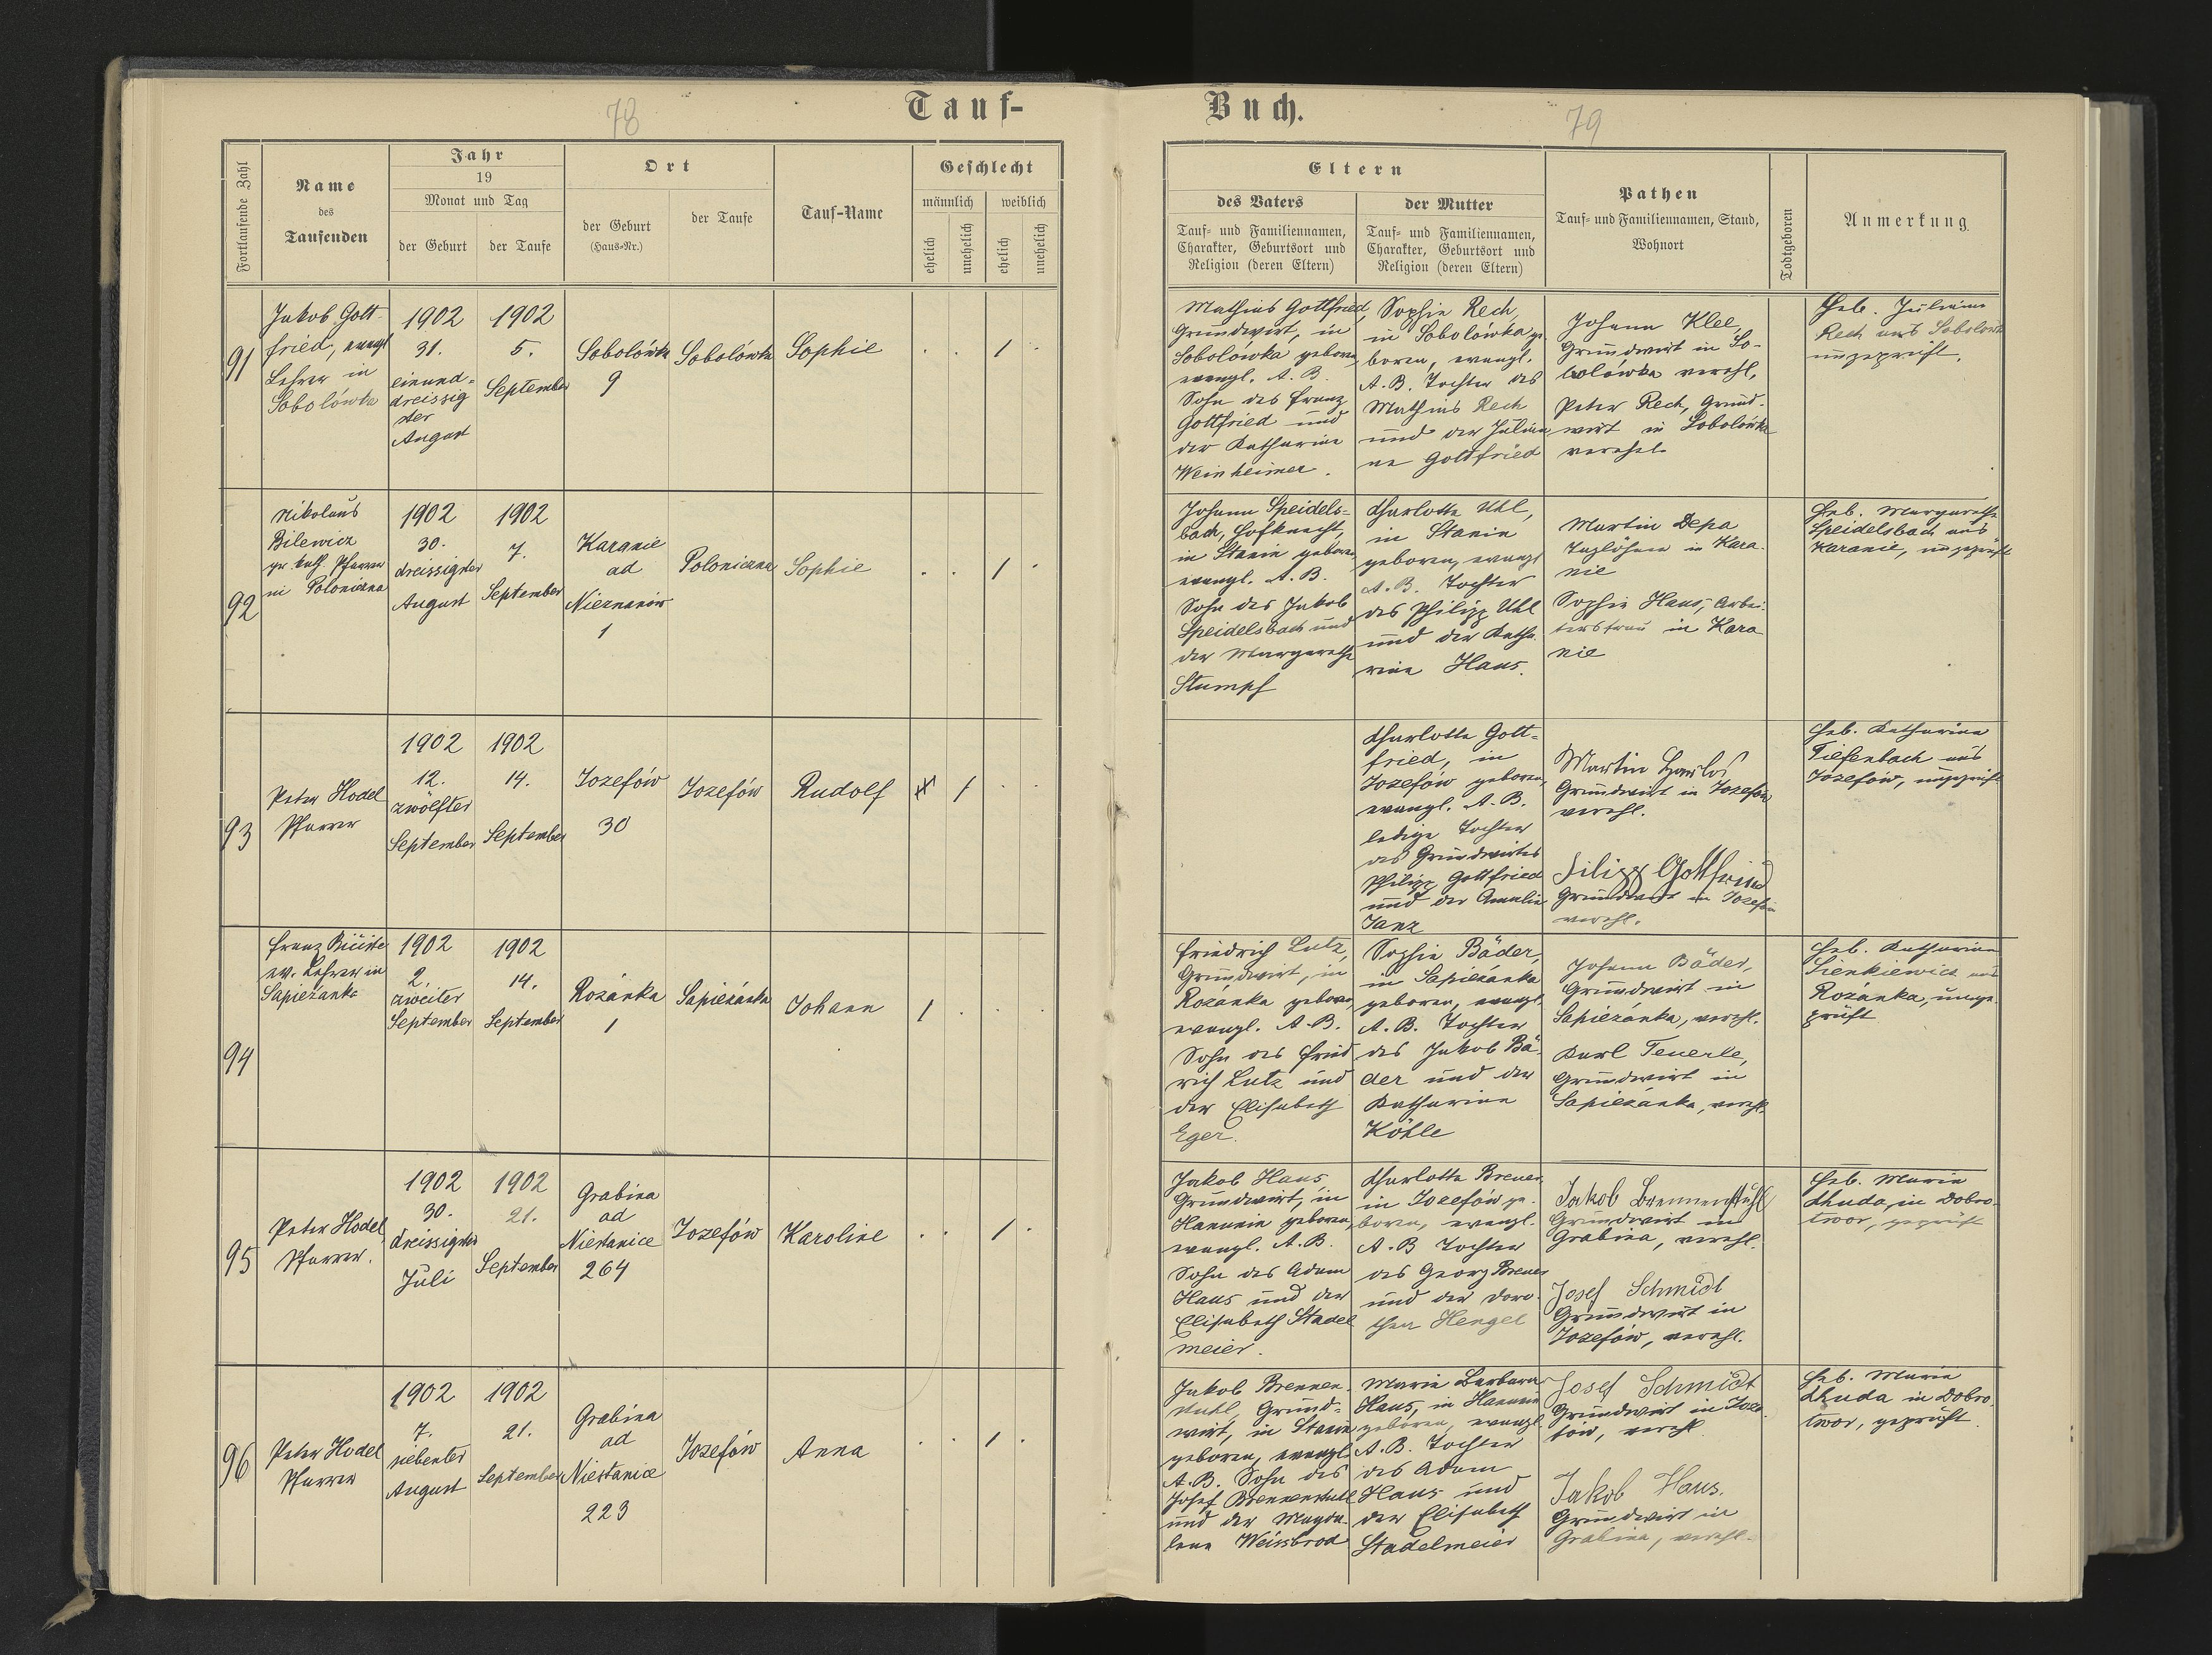 78
Tauf-
Fortlaufende Zahl
Name
des
Taufenden
Jahr
19
Monat und Tag
der Geburt
der Taufe
Ort
der Geburt
(Haus-Nr.)
der Taufe
Tauf-Name
Geschlecht
männlich
weiblich
ehelich
unehelich
ehelich
unehelich
91
Jakob Gott-
fried, evangl
Lehrer in
Sobolówka
1902
31.
einund-
dreissig
ster
August
1902
5.
September
Sobolówka
9
Sobolówka
Sophie
. . 1 .
92
Nikolaus
Bilewicz
gr. kath. Pfarrer
in Poloniczna
1902
30.
dreissigster
August
1902
7.
September
Karanie
ad
Nieznanów
1
Poloniczna
Sophie
. . 1 .
93
Peter Hodel
Pfarrer
1902
12.
zwölfter
September
1902
14.
September
Jozefów
30
Jozefów
Rudolf
1 . .
94
Franz
ev. Lehrer in
Sapiezanka
1902
2.
zweiter
September
1902
14.
September
Rozánka
1
Sapiezanka
Johann
1 . . .
95
Peter Hodel
Pfarrer.
1902
30.
dreissigster
Juli
1902
21.
September
Grabina
ad
Niestanice
264
Jozefów
Karoline
. . 1 .
96
Peter Hodel
Pfarrer
1902
7.
siebenter
August
1902
21.
September
Grabina
ad
Niestanice
223
Jozefów
Anna
. . 1 .
Buch.
79
Eltern
des Vaters
Tauf- und Familiennamen,
Charakter, Geburtsort und
Religion (deren Eltern)
der Mutter
Tauf- und Familiennamen,
Charakter, Geburtsort und
Religion (deren Eltern)
Pathen
Tauf- und Familiennamen, Stand,
Wohnort
Todtgeboren
Anmerkung
Mathias Gottfried,
Grundwirt, in
Sobolówka geboren,
evangl. A. B.
Sohn des Franz
Gottfried und
der Katharine
Weinheimer.
Sophie Rech,
in Sobolówka ge
boren, evangl.
A. B. Tochter des
Mathias Rech
und der Julia
ne Gottfried
Johann Klee,
Grundwirt in So-
bolówka verehl.
Peter Rech, Grund-
wirt in Sobolówka
verehel.
Heb. Juliane
Rech aus Sobolówka
ungeprüft.
Johann Speidels-
bach, Hofknecht,
in Stanin geboren,
evangl. A. B.
Sohn des Jakob
Speidelsbach und
der Margarethe
Stumpf
Charlotte Uhl,
in Stanin
geboren, evangl
A. B. Tochter
des Philipp Uhl
und der Katha
rine Haus.
Martin Depa
Taglöhner in Kara-
nie
Sophie Haus, Arbei-
tersfrau in Kara
nie
Heb. Margarethe
Speidelsbach aus
Karanie, ungeprüft
Charlotte Gott-
fried, in
Jozefów geboren,
evangl. A. B.
ledige Tochter
des Grundwirtes
Philipp Gottfried
und der Amalie
Janz
Martin Harlos
Grundwirt in Jozefów
verehl.
Filipp Gottfried
Grundwirt in Jozefów
verehl.
Heb. Katharina
Tiefenbach aus
Józefów, ungeprüft
Friedrich Lutz,
Grundwirt, in
Rozánka geboren,
evangl. A. B.
Sohn des Fried
rich Lutz und
der Elisabeth
Eger.
Sophie Bäder,
in Sapiezánka
geboren, evangl.
A. B. Tochter
des Jakob Bä-
der und der
Katharina
Köhle
Johann Bäder,
Grundwirt in
Sapiezánka, verehl.
Karl Teuerle,
Grundwirt in
Sapiezánka, verehl.
Heb. Katharina
Sienkiewicz aus
Rozánka, unge-
prüft
Jakob Haus,
Grundwirt, in
Hanunin geboren,
evangl. A. B.
Sohn des Adam
Haus und der
Elisabeth Stadel
meier.
Charlotte Brener,
in Jozefów ge-
boren, evangl.
A. B Tochter
des Georg Brener
und der Doro-
thea Hengel
Jakob Brennenstuhl
Grundwirt in
Grabina, verehl.
Josef Schmidt
Grundwirt in
Jozefów, verehl.
Heb. Maria
Chuda, in Dobro-
twor, geprüft
Jakob Brennen-
stuhl, Grund-
wirt, in Stanin
geboren, evangl.
A. B. Sohn des
Josef Brennenstuhl
und der Magda-
lena Weissbrod
Maria Barbara
Haus, in Hanunin
geboren, evangl.
A. B. Tochter
des Adam
Haus und
der Elisabeth
Stadelmeier
Josef Schmidt
Grundwirt in Joze
fów, verehl.
Jakob Haus.
Grundwirt in
Grabina, verehl.
Heb. Maria
Chuda in Dobro-
twor, geprüft.